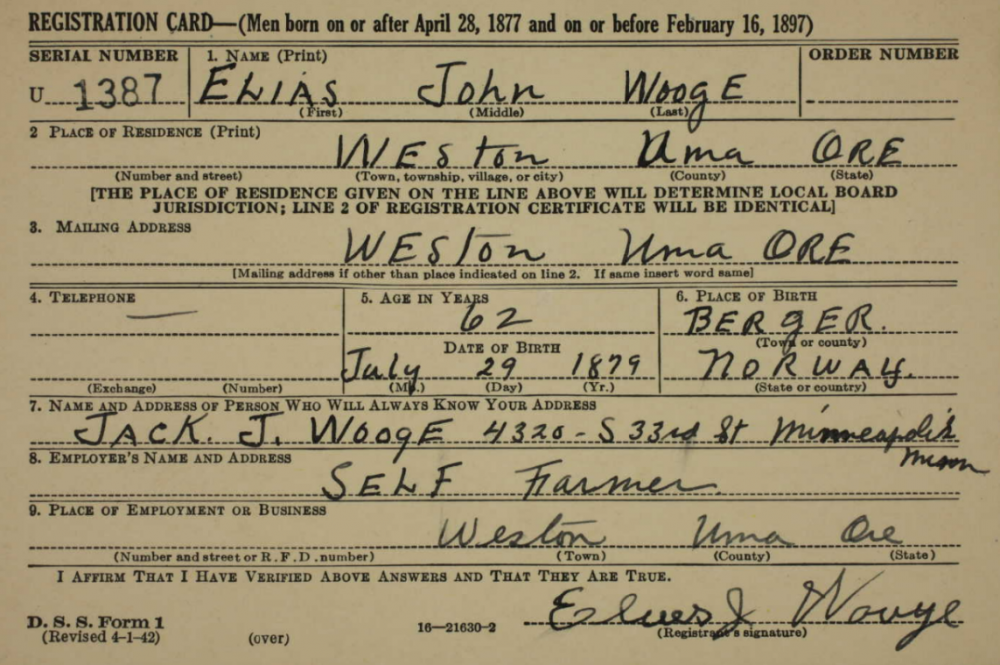 REGISTRATION CARD—(Men born on or after April 28, 1877 and on or before February 16, 1897)
SERIAL NUMBER 1. NAME (Print) ORDER NUMBER
U 1387 ELIAS John WoogE
(First) (Middle) (Last)
2 PLACE OF RESIDENCE (Print)
WESton Uma ORE
(Number and street) (Town, township, village, or city) (County) (State)
[THE PLACE OF RESIDENCE GIVEN ON THE LINE ABOVE WILL DETERMINE LOCAL BOARD
JURISDICTION; LINE 2 OF REGISTRATION CERTIFICATE WILL BE IDENTICAL]
3. MAILING ADDRESS
WESton Uma ORE
[Mailing address if other than place indicated on line 2. If same insert word same]
4. TELEPHONE 5. AGE IN YEARS 6. PLACE OF BIRTH
— 62 BERGER.
DATE OF BIRTH (Town or county)
July 29 1879 NORWAY.
(Exchange) (Number) (Mo.) (Day) (Yr.) (State or country)
7. NAME AND ADDRESS OF PERSON WHO WILL ALWAYS KNOW YOUR ADDRESS
JACK. J. WoogE 4320 - S 33rd St Minneapolis
Minn
8. EMPLOYER'S NAME AND ADDRESS
SELF Farmer.
9. PLACE OF EMPLOYMENT OR BUSINESS
Weston Uma Ore
(Number and street or R.F.D. number) (Town) (County) (State)
I AFFIRM THAT I HAVE VERIFIED ABOVE ANSWERS AND THAT THEY ARE TRUE.
Elies J Wooge
D. S. S. Form 1
(Revised 4-1-42) (over) 16—21630-2 (Registrant's signature)